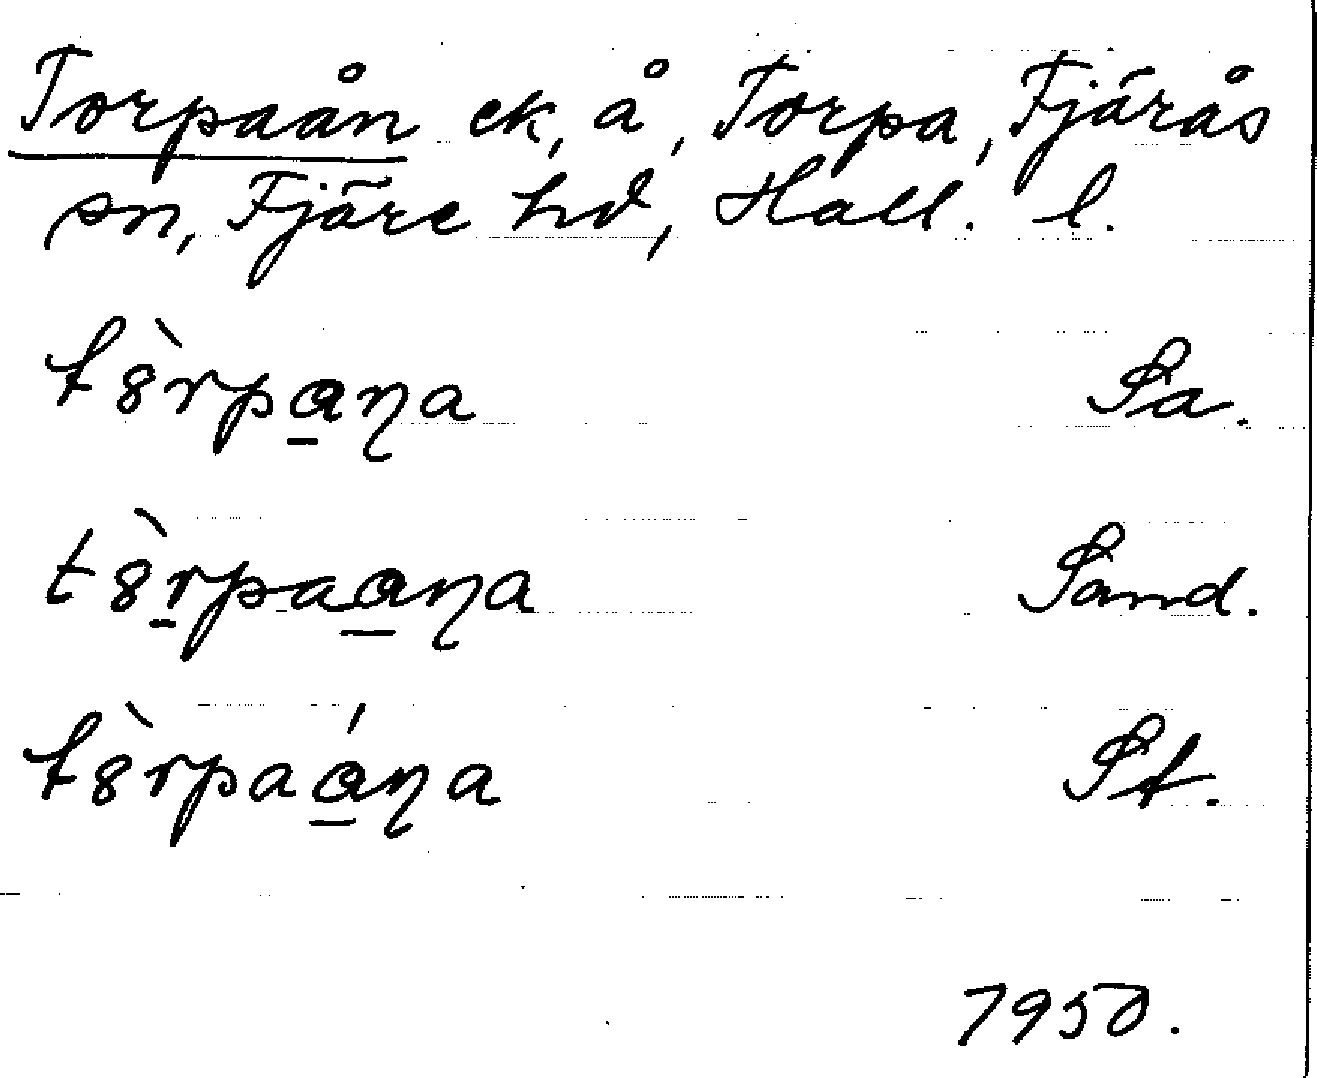 Torpaån ek, å, Torpa, Fjärås
sn, Fjäre hd, Hall. l.
tȣ̀rpa̱ɳa Sa.
tȣ̀ṟpaa̱ɳa Sand.
tȣ̀rpaá̱ɳa St.
1950.